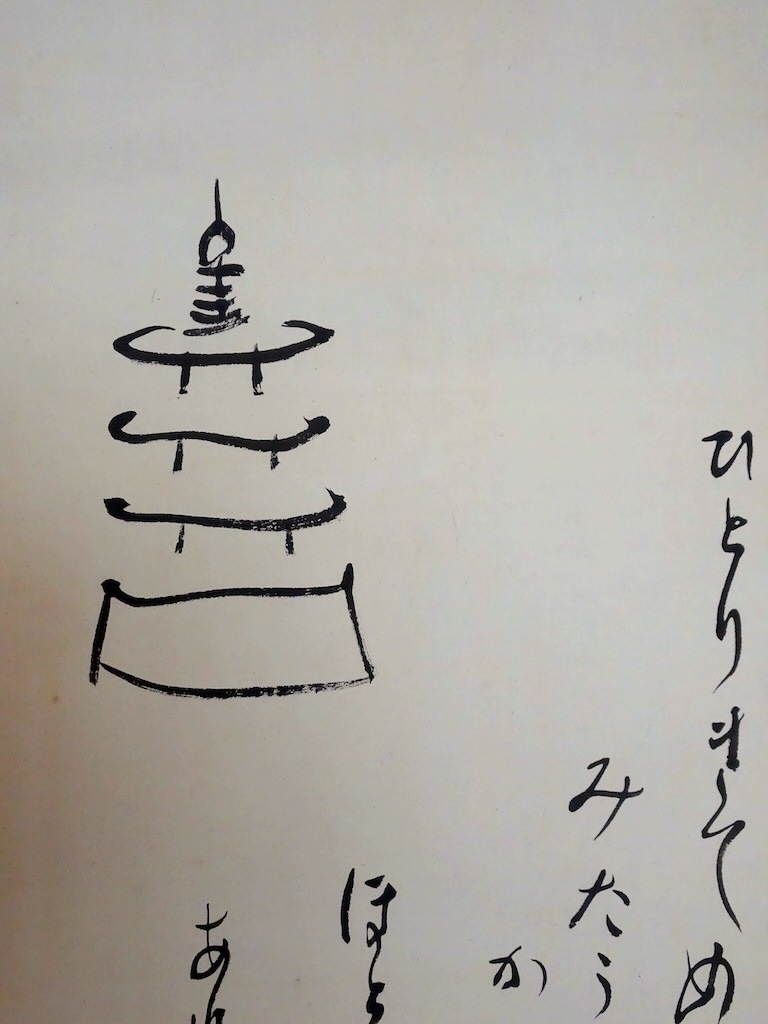 ひとりきてめ
みたう
か
ほと
あ